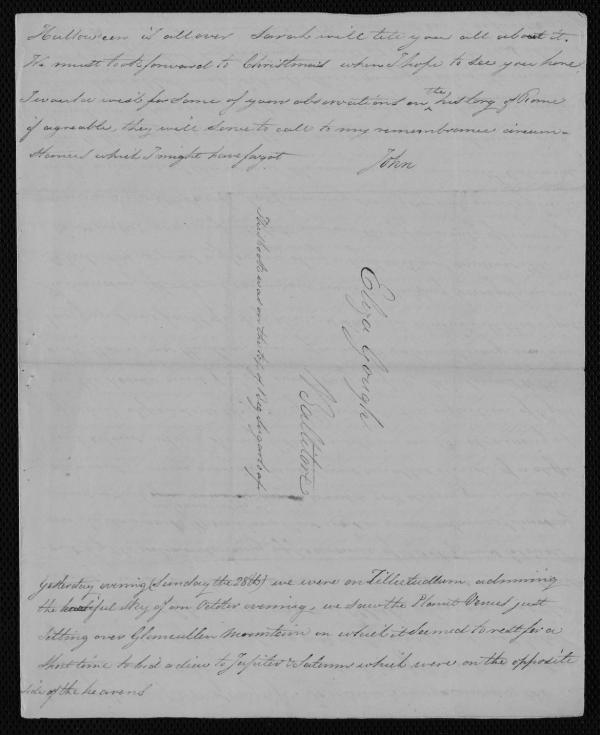 Hallow een is all over Sarah will tell you all about it.
We must look forward to Christmas when I hope to see you here
I want a wish for some of your observations on the history of Rome
if agreable, they will serve to call to my remembrance circum-
stances which I might have forgot
John
Eliza Gough
Ballitore
This book was on the top of Big Sugarloaf
Yesterday evening (Sunday the 28th) we were on Tillietudlum admiring
the beautiful sky of an October evening, we saw the Planet Venus just
sitting over Glencullen Mountain on which it seemed to rest for a
short time to bid adieu to Jupiter & Saturn which were on the opposite
side of the heavens